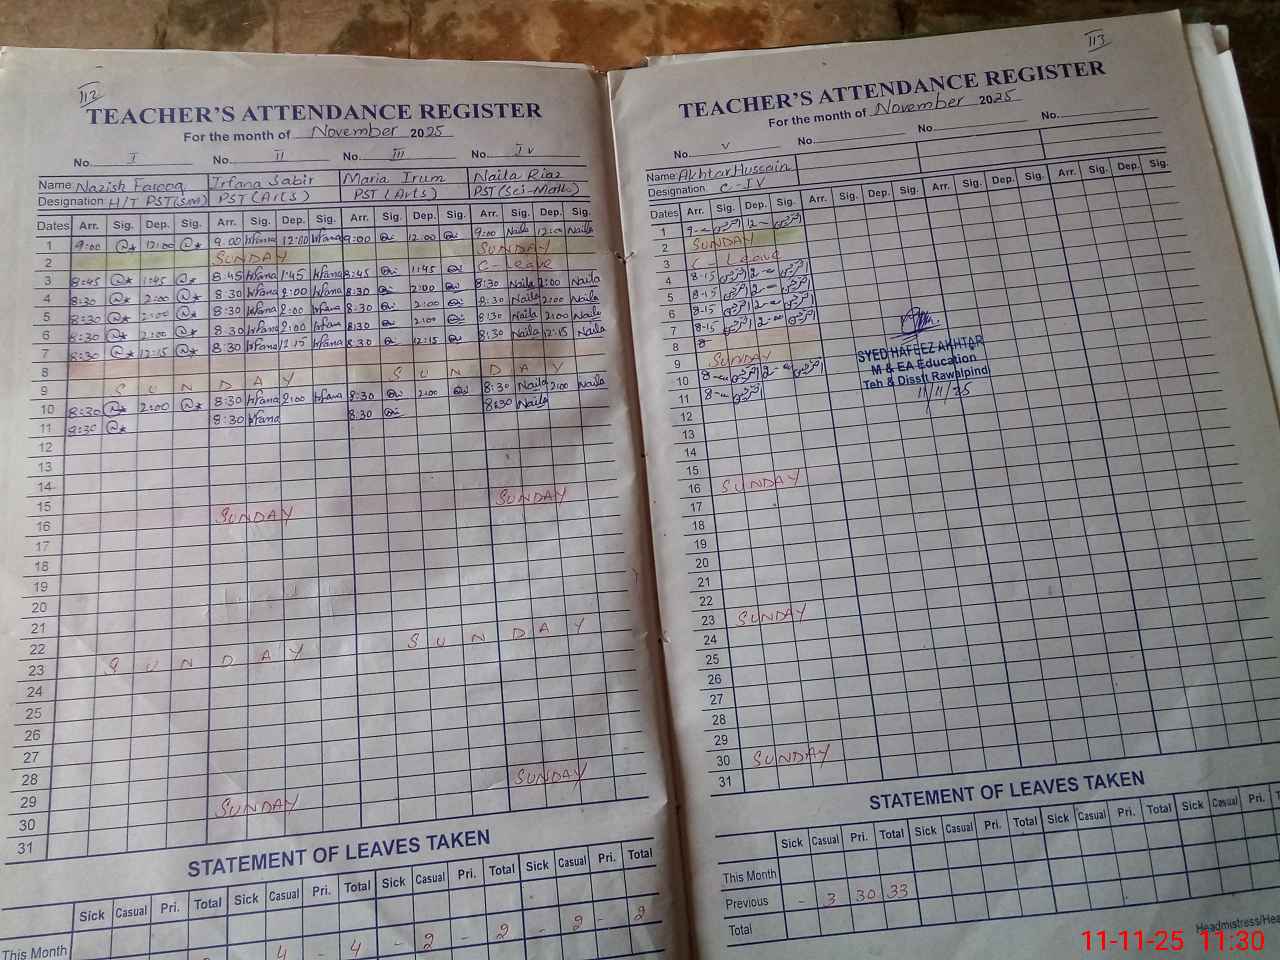 112
TEACHER'S ATTENDANCE REGISTER
For the month of November 2025
No. I No. II No. III No. IV
Name Nazish Farooq Irfana Sabir Maria Irum Naila Riaz
Designation H/T PST(Sci) PST (Arts) PST (Arts) PST (Sci-Math)
Dates Arr. Sig. Dep. Sig. Arr. Sig. Dep. Sig. Arr. Sig. Dep. Sig. Arr. Sig. Dep. Sig.
1 9:00 12:00 9:00 Irfana 12:00 Irfana 9:00 12:00 9:00 Naila 12:00 Naila
2 SUNDAY SUNDAY
3 8:45 1:45 8:45 Irfana 1:45 Irfana 8:45 1:45 C-Leave
4 8:30 2:00 8:30 Irfana 2:00 Irfana 8:30 2:00 8:30 Naila 2:00 Naila
5 8:30 2:00 8:30 Irfana 2:00 Irfana 8:30 2:00 8:30 Naila 2:00 Naila
6 8:30 2:00 8:30 Irfana 2:00 Irfana 8:30 2:00 8:30 Naila 2:00 Naila
7 8:30 12:15 8:30 Irfana 12:15 Irfana 8:30 12:15 8:30 Naila 12:15 Naila
8
9 SUNDAY SUNDAY
10 8:30 2:00 8:30 Irfana 2:00 Irfana 8:30 2:00 8:30 Naila 2:00 Naila
11 8:30 8:30 Irfana 8:30 8:30 Naila
12
13
14
15
16 SUNDAY SUNDAY
17
18
19
20
21
22
23 SUNDAY SUNDAY
24
25
26
27
28
29
30 SUNDAY SUNDAY
31
STATEMENT OF LEAVES TAKEN
Sick Casual Pri. Total Sick Casual Pri. Total Sick Casual Pri. Total Sick Casual Pri. Total
This Month
4 - 4 - 2 - 2 2 - 2
113
TEACHER'S ATTENDANCE REGISTER
For the month of November 2025
No. V No. No. No.
Name Akhtar Hussain
Designation C-IV
Dates Arr. Sig. Dep. Sig. Arr. Sig. Dep. Sig. Arr. Sig. Dep. Sig. Arr. Sig. Dep. Sig.
1 9-00 12-00
2 SUNDAY
3 C-Leave
4 8-15 2-00
5 8-15 2-00
6 8-15 2-00
7 8-15 2-00
8 8
9 SUNDAY
10 8-00 2-00
11 8-00
12
13
14
15
16 SUNDAY
17
18
19
20
21
22
23 SUNDAY
24
25
26
27
28
29
30 SUNDAY
31
SYED HAFEEZ AKHTAR
M & EA Education
Teh & Disstt Rawalpind
11/11/25
STATEMENT OF LEAVES TAKEN
Sick Casual Pri. Total Sick Casual Pri. Total Sick Casual Pri. Total Sick Casual Pri.
This Month
Previous - 3 30 33
Total
Headmistress/Hea
11-11-25 11:30